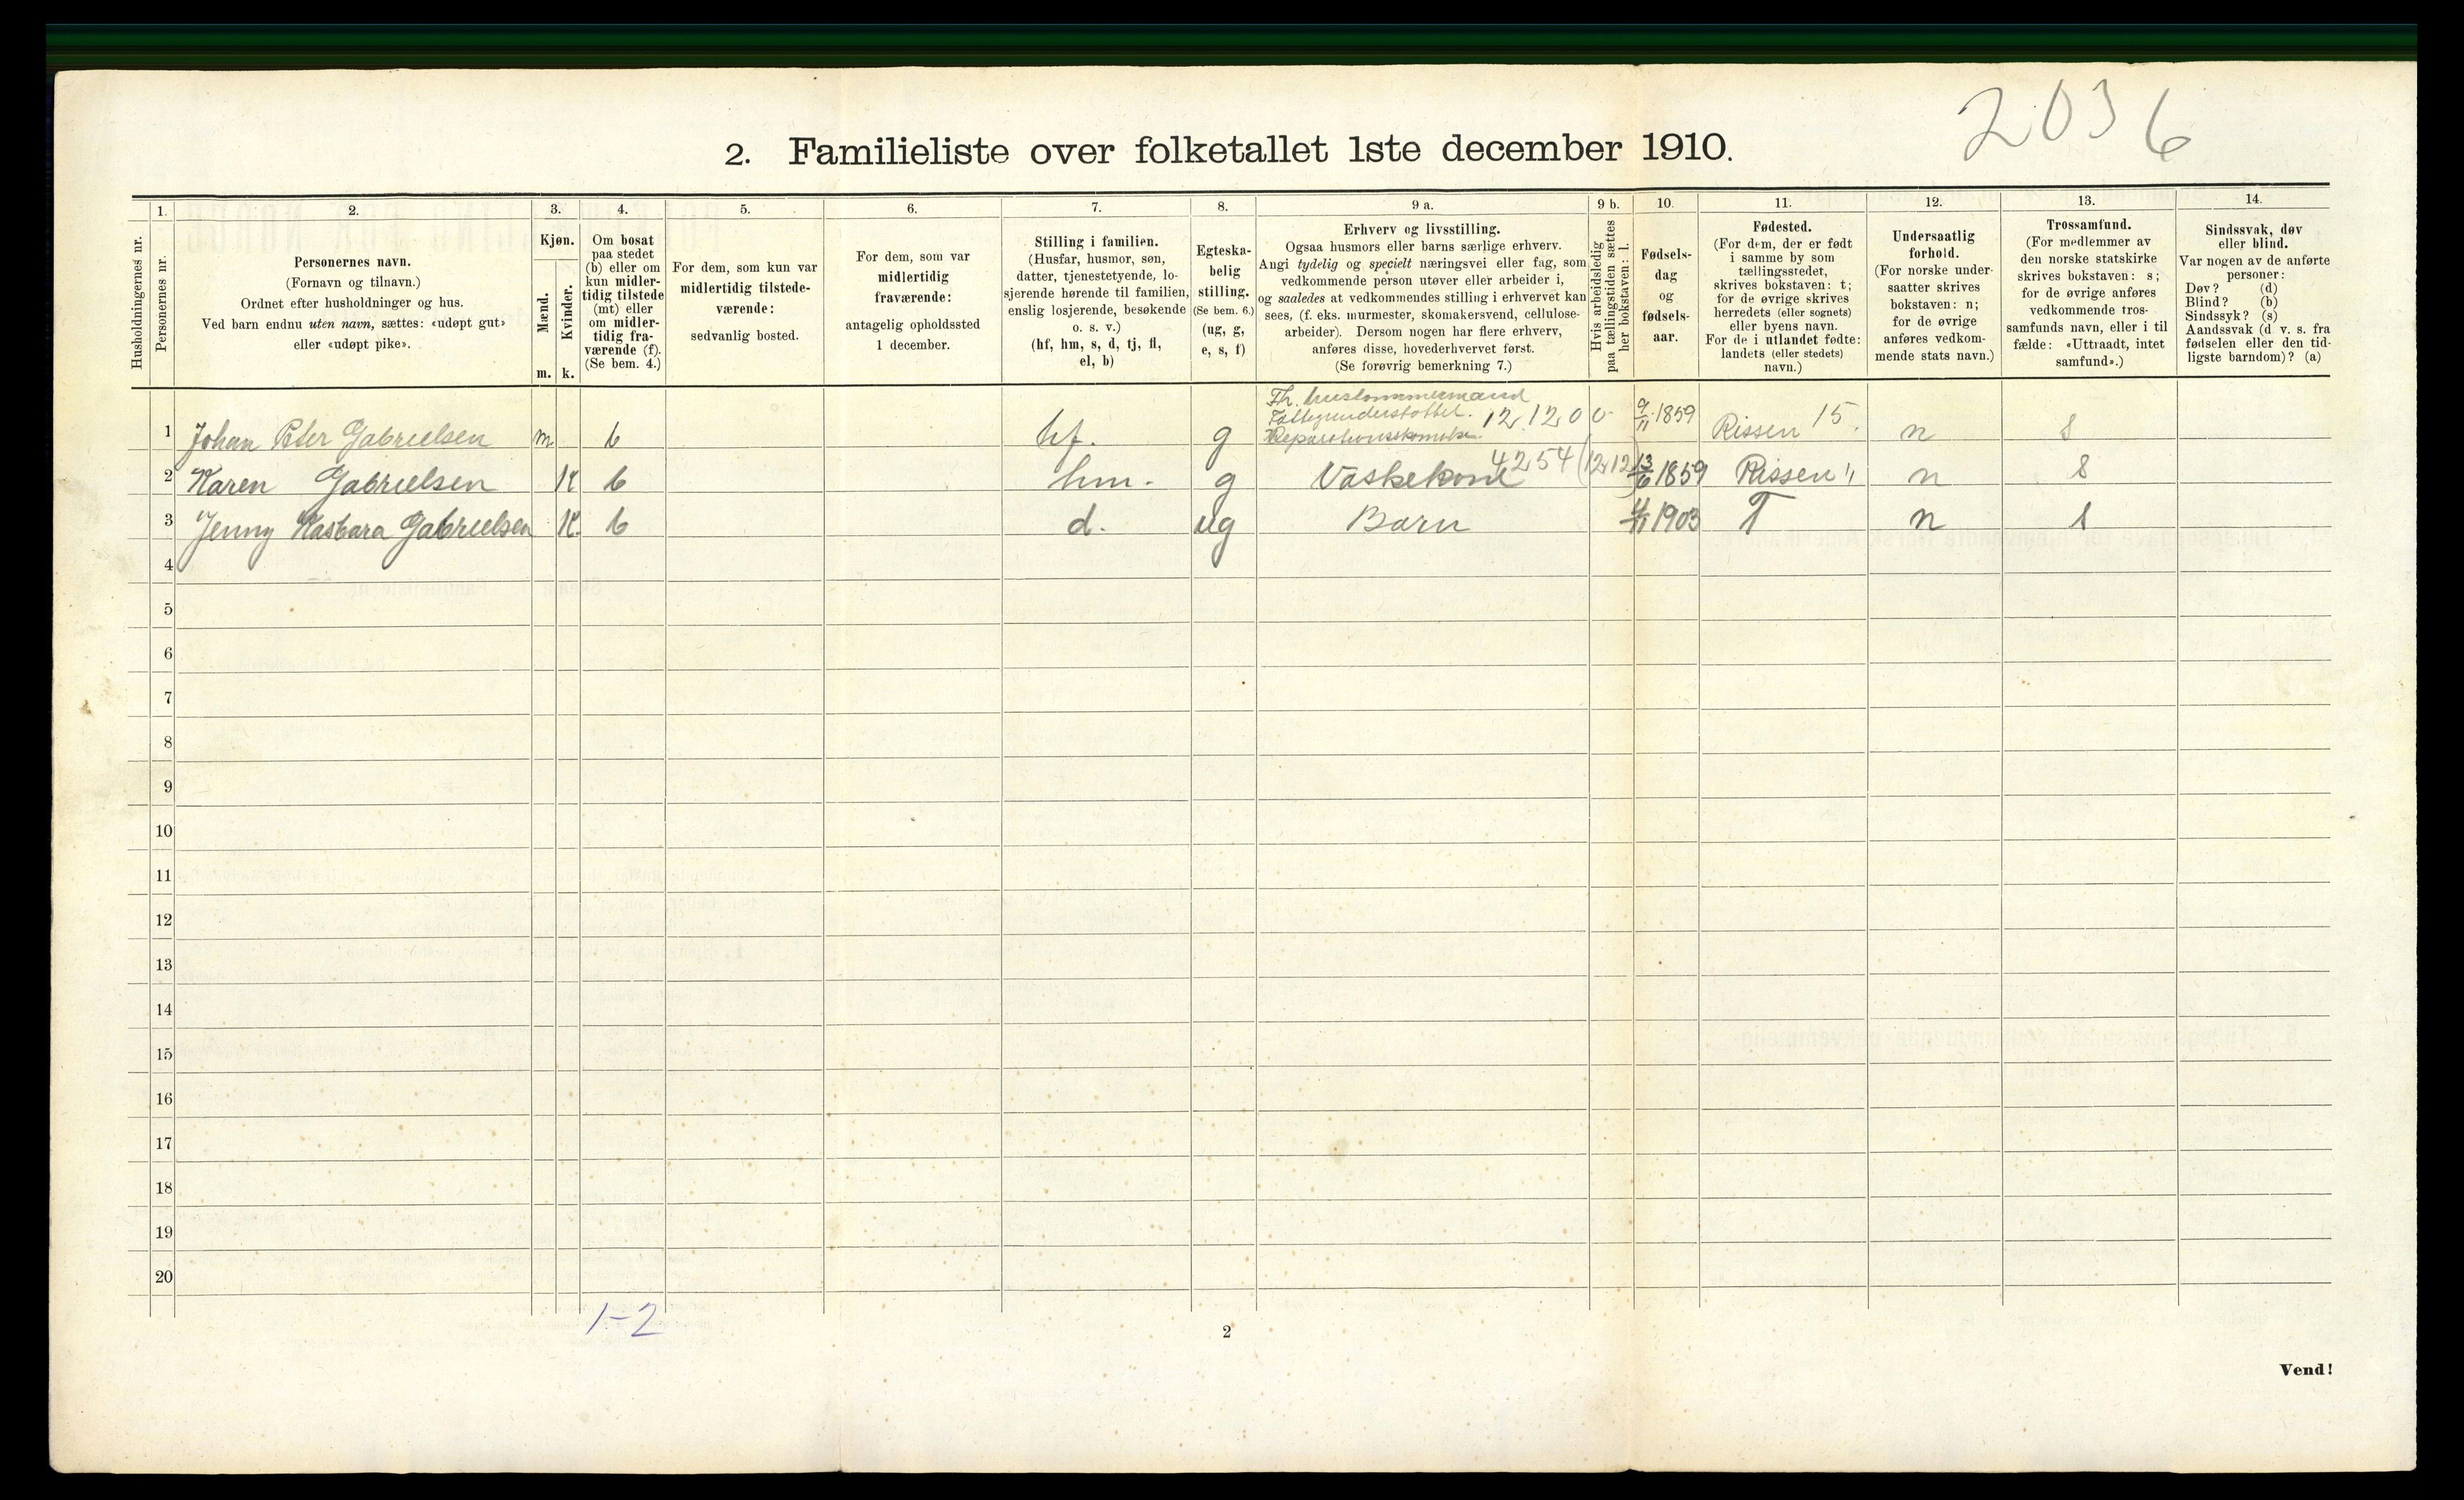 2036
2. Familieliste over folketallet 1ste december 1910.
1. 2. 3. 4. 5. 6. 7. 8. 9 a. 9 b. 10. 11. 12. 13. 14.
Husholdningernes nr.
Personernes nr.
Personernes navn.
(Fornavn og tilnavn.)
Ordnet efter husholdninger og hus.
Ved barn endnu uten navn, sættes: «udøpt gut»
eller «udøpt pike».
Kjøn.
Mænd.
Kvinder.
m. k.
Om bosat
paa stedet
(b) eller om
kun midler-
tidig tilstede
(mt) eller
om midler-
tidig fra-
værende (f).
(Se bem. 4.)
For dem, som kun var
midlertidig tilstede-
værende:
sedvanlig bosted.
For dem, som var
midlertidig
fraværende:
antagelig opholdssted
1 december.
Stilling i familien.
(Husfar, husmor, søn,
datter, tjenestetyende, lo-
sjerende hørende til familien,
enslig losjerende, besøkende
o. s. v.)
(hf, hm, s, d, tj, fl,
el, b)
Egteska-
belig
stilling.
(Se bem. 6.)
(ug, g,
e, s, f)
Erhverv og livsstilling.
Ogsaa husmors eller barns særlige erhverv.
Angi tydelig og specielt næringsvei eller fag, som
vedkommende person utøver eller arbeider i,
og saaledes at vedkommendes stilling i erhvervet kan
sees, (f. eks. murmester, skomakersvend, cellulose-
arbeider). Dersom nogen har flere erhverv,
anføres disse, hovederhvervet først.
(Se forøvrig bemerkning 7.)
Hvis arbeidsledig
paa tællingstiden sættes
her bokstaven: l.
Fødsels-
dag
og
fødsels-
aar.
Fødested.
(For dem, der er født
i samme by som
tællingsstedet,
skrives bokstaven: t;
for de øvrige skrives
herredets (eller sognets)
eller byens navn.
For de i utlandet fødte:
landets (eller stedets)
navn.)
Undersaatlig
forhold.
(For norske under-
saatter skrives
bokstaven: n;
for de øvrige
anføres vedkom-
mende stats navn.)
Trossamfund.
(For medlemmer av
den norske statskirke
skrives bokstaven: s;
for de øvrige anføres
vedkommende tros-
samfunds navn, eller i til
fælde: «Uttraadt, intet
samfund».)
Sindssvak, døv
eller blind.
Var nogen av de anførte
personer:
Døv? (d)
Blind? (b)
Sindssyk? (s)
Aandssvak (d. v. s. fra
fødselen eller den tid-
ligste barndom)? (a)
1 Johan Peter Gabrielsen m b hf. g 12,12,0 0 9/11 1859 Rissen 15. n s
2 Karen Gabrielsen K b hm. g Vaskekone 4254 (12,12) 13/6 1859 Rissen " n s
3 Jenny Gabrielsen K. b d. ug Barn 1903 T n s
4
5
6
7
8
9
10
11
12
13
14
15
16
17
18
19
20
1-2
2
Vend!